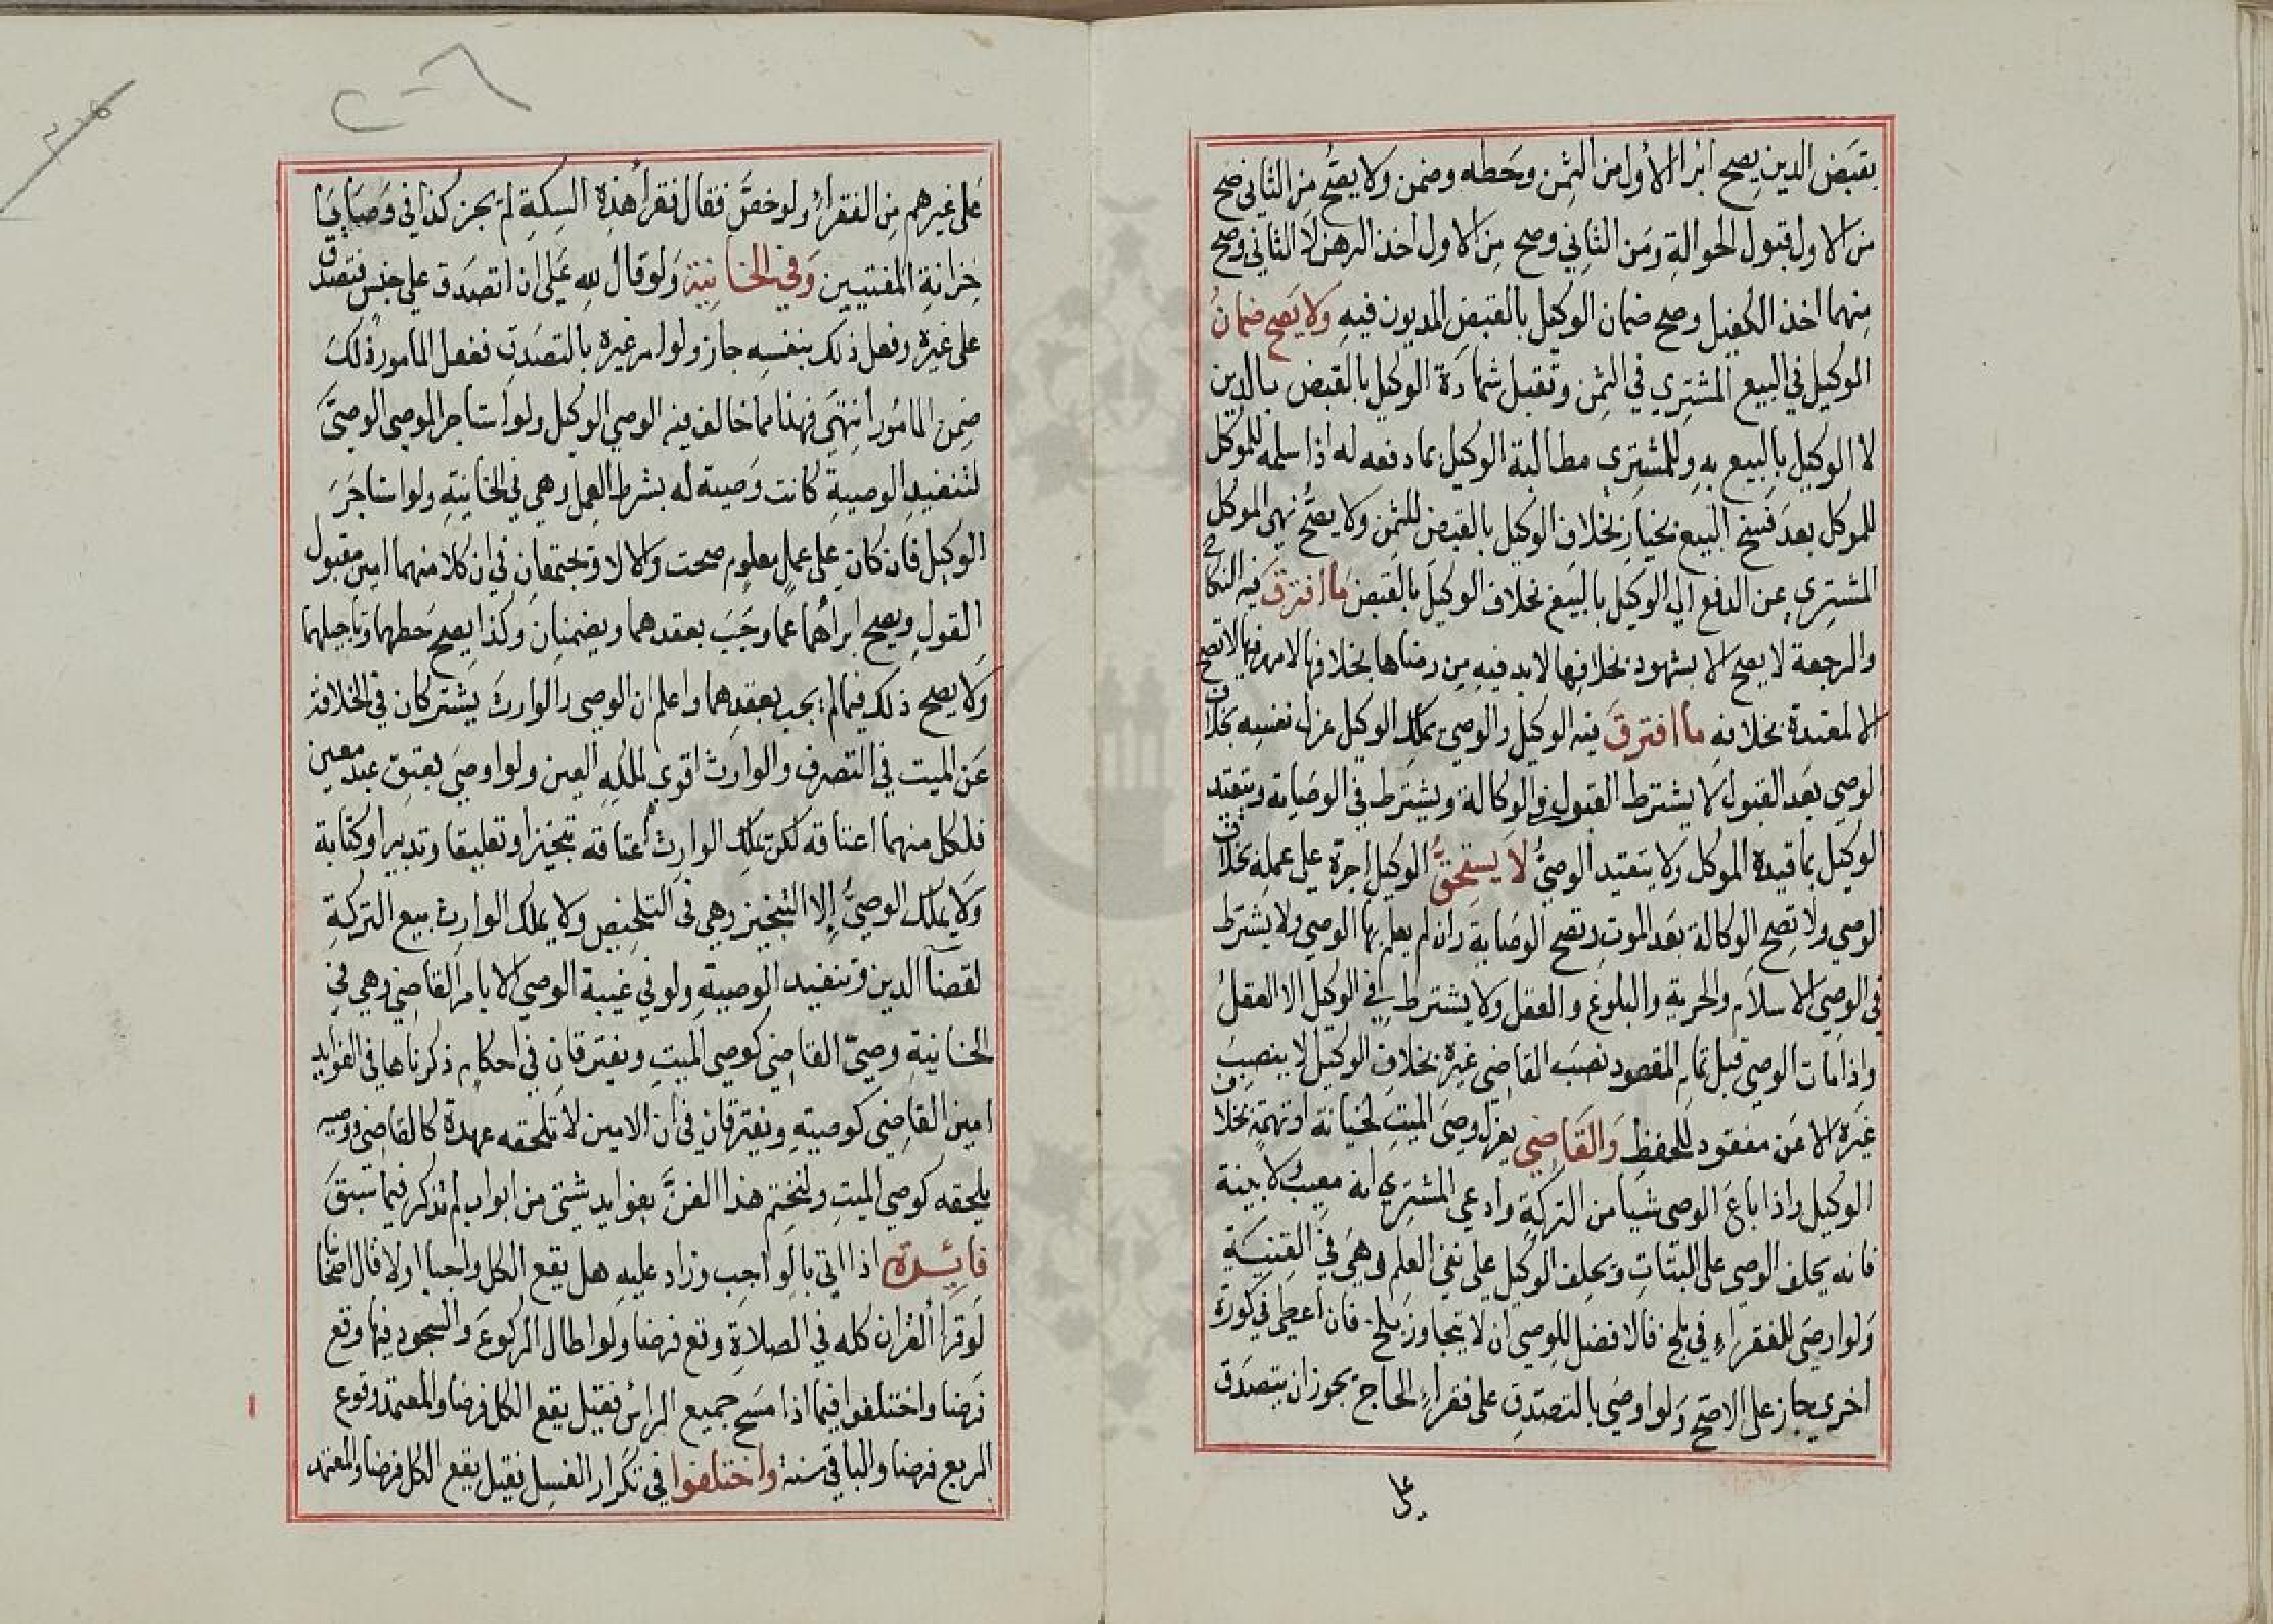 بقبض الدين يصح ابرا الاول من الثمن وحطه وضمن ولا يصح من الثاني صح
من الاول قبول الحوالة ومن الثاني وصح من الاول اخذ الرهن لا الثاني وصح
منهما اخذ الكفيل وصح ضمان الوكيل بالقبض المديون فيه ولا يصح ضمان
الوكيل في البيع المشتري في الثمن وتقبل شهادة الوكيل بالقبض بالدين
لا الوكيل بالبيع به وللمشتري مطالبة الوكيل بما دفعه له اذا سلمه للموكل
للموكل بعد فسخ البيع بخيار بخلاف الوكيل بالقبض للثمن ولا يصح نهى الموكل
المشتري عن الدفع الي الوكيل بالبيع بخلاف الوكيل بالقبض ما افترق فيه النكاح
والرجعة لا يصح الا بشهود بخلافها لابد فيه من رضاها بخلافها لا مهر فيها لا تصح
الا لمعتدة بخلافه ما افترق فيه الوكيل والوصي يملك الوكيل عزل نفسه بخلاف
الوصي بعد القبول لا يشترط القبول في الوكالة ويشترط في الوصاية ويتقيد
الوكيل بما قيده الموكل ولا يتقيد الوصي لا يستحق الوكيل اجرة على عمله بخلاف
الوصي ولا تصح الوكالة بعد الموت وتصح الوصاية وان لم يعلم بها الوصي ولا يشترط
في الوصي الاسلام والحرية والبلوغ والعقل ولا يشترط في الوكيل الا العقل
واذا مات الوصي قبل تمام المقصود نصب القاضي غيره بخلاف الوكيل لا ينصب
غيره الا عن مفقود للحفظ والقاضي يعزل وصي الميت لخيانة او تهمة بخلاف
الوكيل واذا باع الوصي شيا من التركة وادعي المشتري انه معيب ولا بينة
فانه يحلف الوصي على البتات ويحلف الوكيل على نفي العلم وهي في القنية
ولو اوصى للفقراء في بلخ فالافضل للوصي ان لا يتجاوز بلخ فان اعطى في كورة
اخري جاز على الاصح ولو اوصى بالتصدق على فقراء الحاج يجوز ان يتصدق
على
على غيرهم من الفقراء ولو خص فقال فقرا هذه السكة لم يجز كذا في وصايا
خزانة المفتيين وفي الخانية ولو قال لله على ان اتصدق على جنس فتصدق
على غيره وفعل ذلك بنفسه جاز ولو امر غيره بالتصدق ففعل المامور ذلك
ضمن المامور انتهى فهذا مما خالف فيه الوصي الوكيل ولو استاجر الموصي الوصي
لتنفيد الوصية كانت وصية له بشرط العمل وهي في الخانية ولو استاجر
الوكيل فان كان على عمل معلوم صحت والا لا وتجتمعان في ان كلا منهما امين مقبول
القول ويصح ابراهما عما وجب بعقدهما ويضمنان وكذا يصح حطهما وتاجيلهما
ولا يصح ذلك فيما لم يجب بعقدهما واعلم ان الوصي والوارث يشتركان في الخلافة
عن الميت في التصرف والوارث اقوي لملكه العين ولو اوصي بعتق عبد معين
فلكل منهما اعتاقه لكن يملك الوارث اعتاقه تنجيزا وتعليقا وتدبيرا وكتابة
ولا يملك الوصي إلا التنجيز وهي في التلخيص ولا يملك الوارث بيع التركة
لقضا الدين وتنفيد الوصية ولو في غيبة الوصي الا بامر القاضي وهي في
الخانية وصي القاضي كوصي الميت ويفترقان في احكام ذكرناها في الفوايد
امين القاضي كوصيه ويفترقان في ان الامين لا تلحقه عهدة كالقاضي ووصيه
يلحقه كوصي الميت ولنختم هذا الفن بفوايد شتى من ابواب لم تذكر فيما سبق
فائدة اذا اتي بالواجب وزاد عليه هل يقع الكل واجبا اولا قال اصحابنا
لو قرا القران كله في الصلاة وقع فرضا ولو اطال الركوع والسجود فيها وقع
فرضا واختلفوا فيما اذا مسح جميع الراس فقيل يقع الكل فرضا والمعتمد وقوع
الربع فرضا والباقي سنة واختلفوا في تكرار الغسل فقيل يقع الكل فرضا والمعتمد